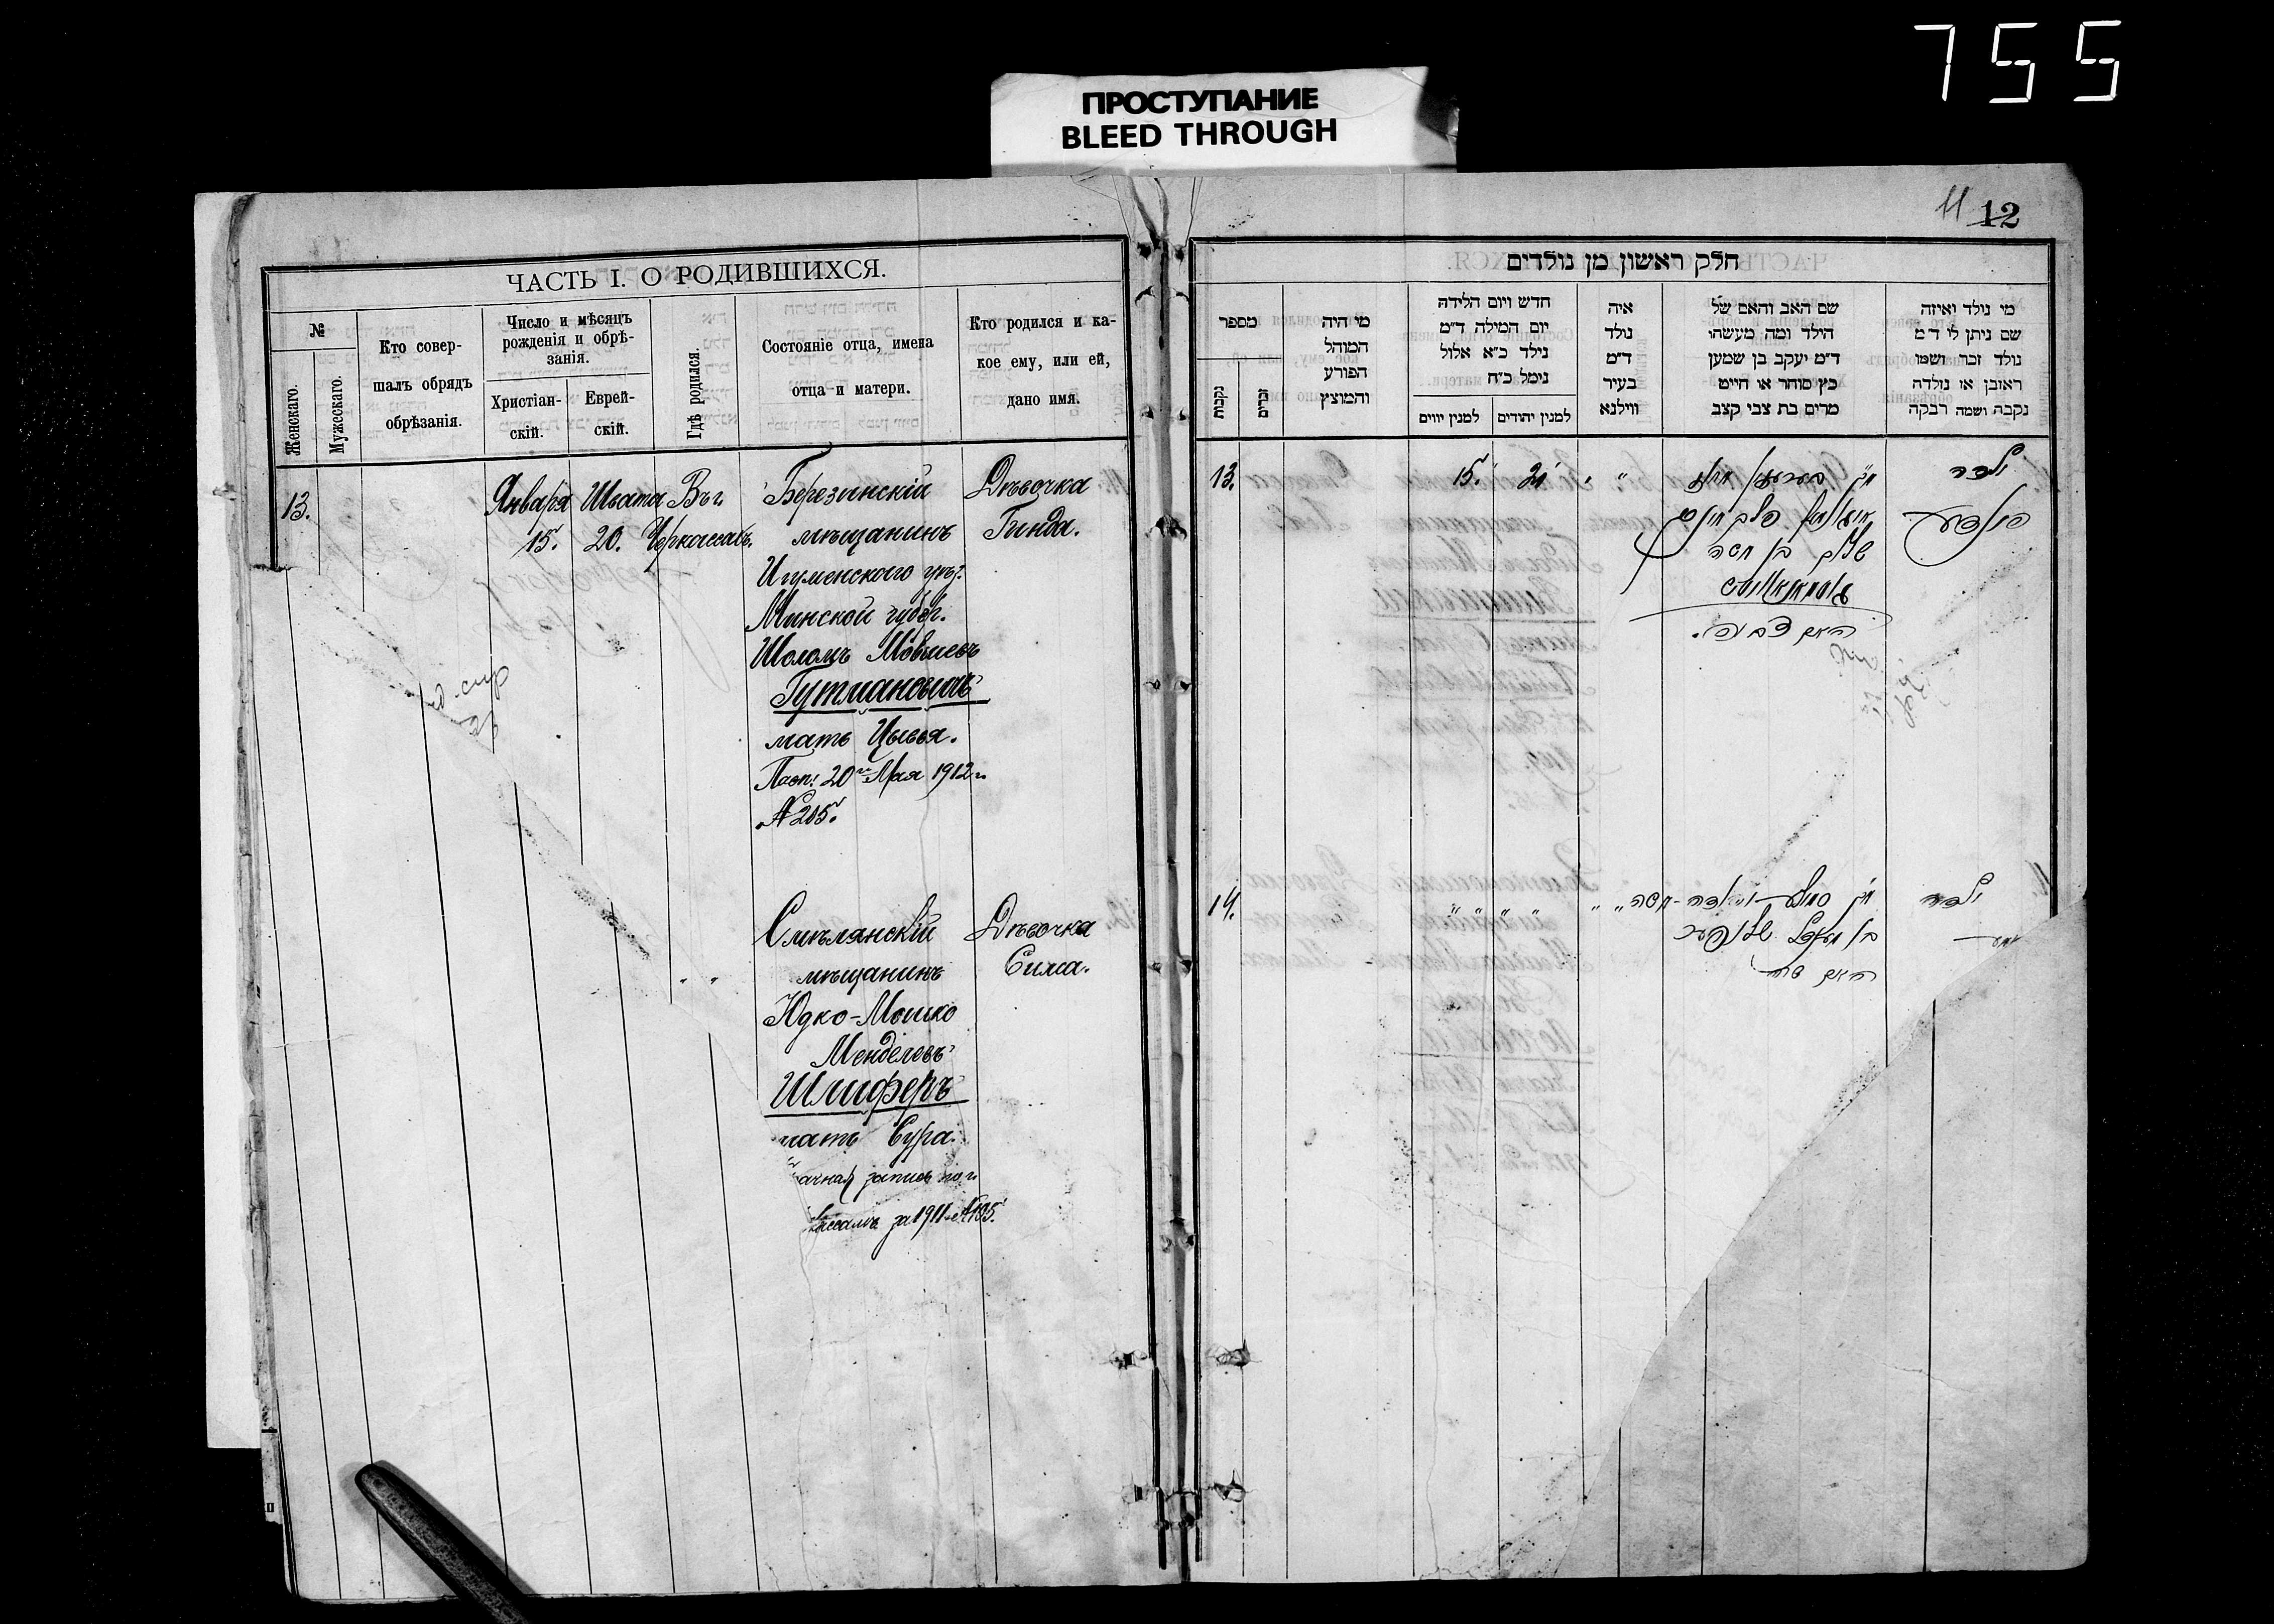 755
ПРОСТУПАНИЕ
BLEED THROUGH
ЧАСТЬ I. О РОДИВШИХСЯ.
№
Женскаго.
Мужескаго.
Кто совер-
шалъ обрядъ
обрѣзанія.
Число и мѣсяцъ
рожденія и обрѣ-
занія.
Христіан-
скій.
Еврей-
скій.
Гдѣ родился.
Состояніе отца, имена
отца и матери.
Кто родился и ка-
кое ему, или ей,
дано имя.
13.
Января
15.
Швата
20.
Въ г.
Черкассахъ.
Березинскій
мѣщанинъ
Игуменского уѣз.
Минской губер.
Шоломъ Мовшевъ
Гутмановичъ
мать Цывья.
Пасп. 20 Мая 1912 г.
№ 205.
Дѣвочка
Гинда.
" "
Смѣлянскій
мѣщанинъ
Юдко-Мошко
Менделевъ
Шлиферъ
мать Сура.
запись по г.
за 1911 г. №195.
Дѣвочка
Сима.
11 12
חלק ראשון מן נולדים
מי נולד ואיזה
שם ניתן לו ד״מ
נולד זכר ושמו
ראובן או נולדה
נקבה ושמה רבקה
שם האב והאם של
הילד ומה מעשהו
ד״מ יעקב בן שמען
כץ סוחר או חייט
מרים בת צבי קצב
איה
נולד
ד״מ
בעיר
ווילנא
חדש ויום הלידה
יום המילה ד״מ
נילד כ״א אלול
נימל כ״ח
למנין יהודים
למנין יווים
מי היה
המוהל
הפורע
והמוצץ
מספר
זכרים
נקבות
ילדה
שלום בן משה
האם צביה.
"
15.
13.
ילדה
בן מענדל שליפער
האם שרה
" "
" " " "
14.